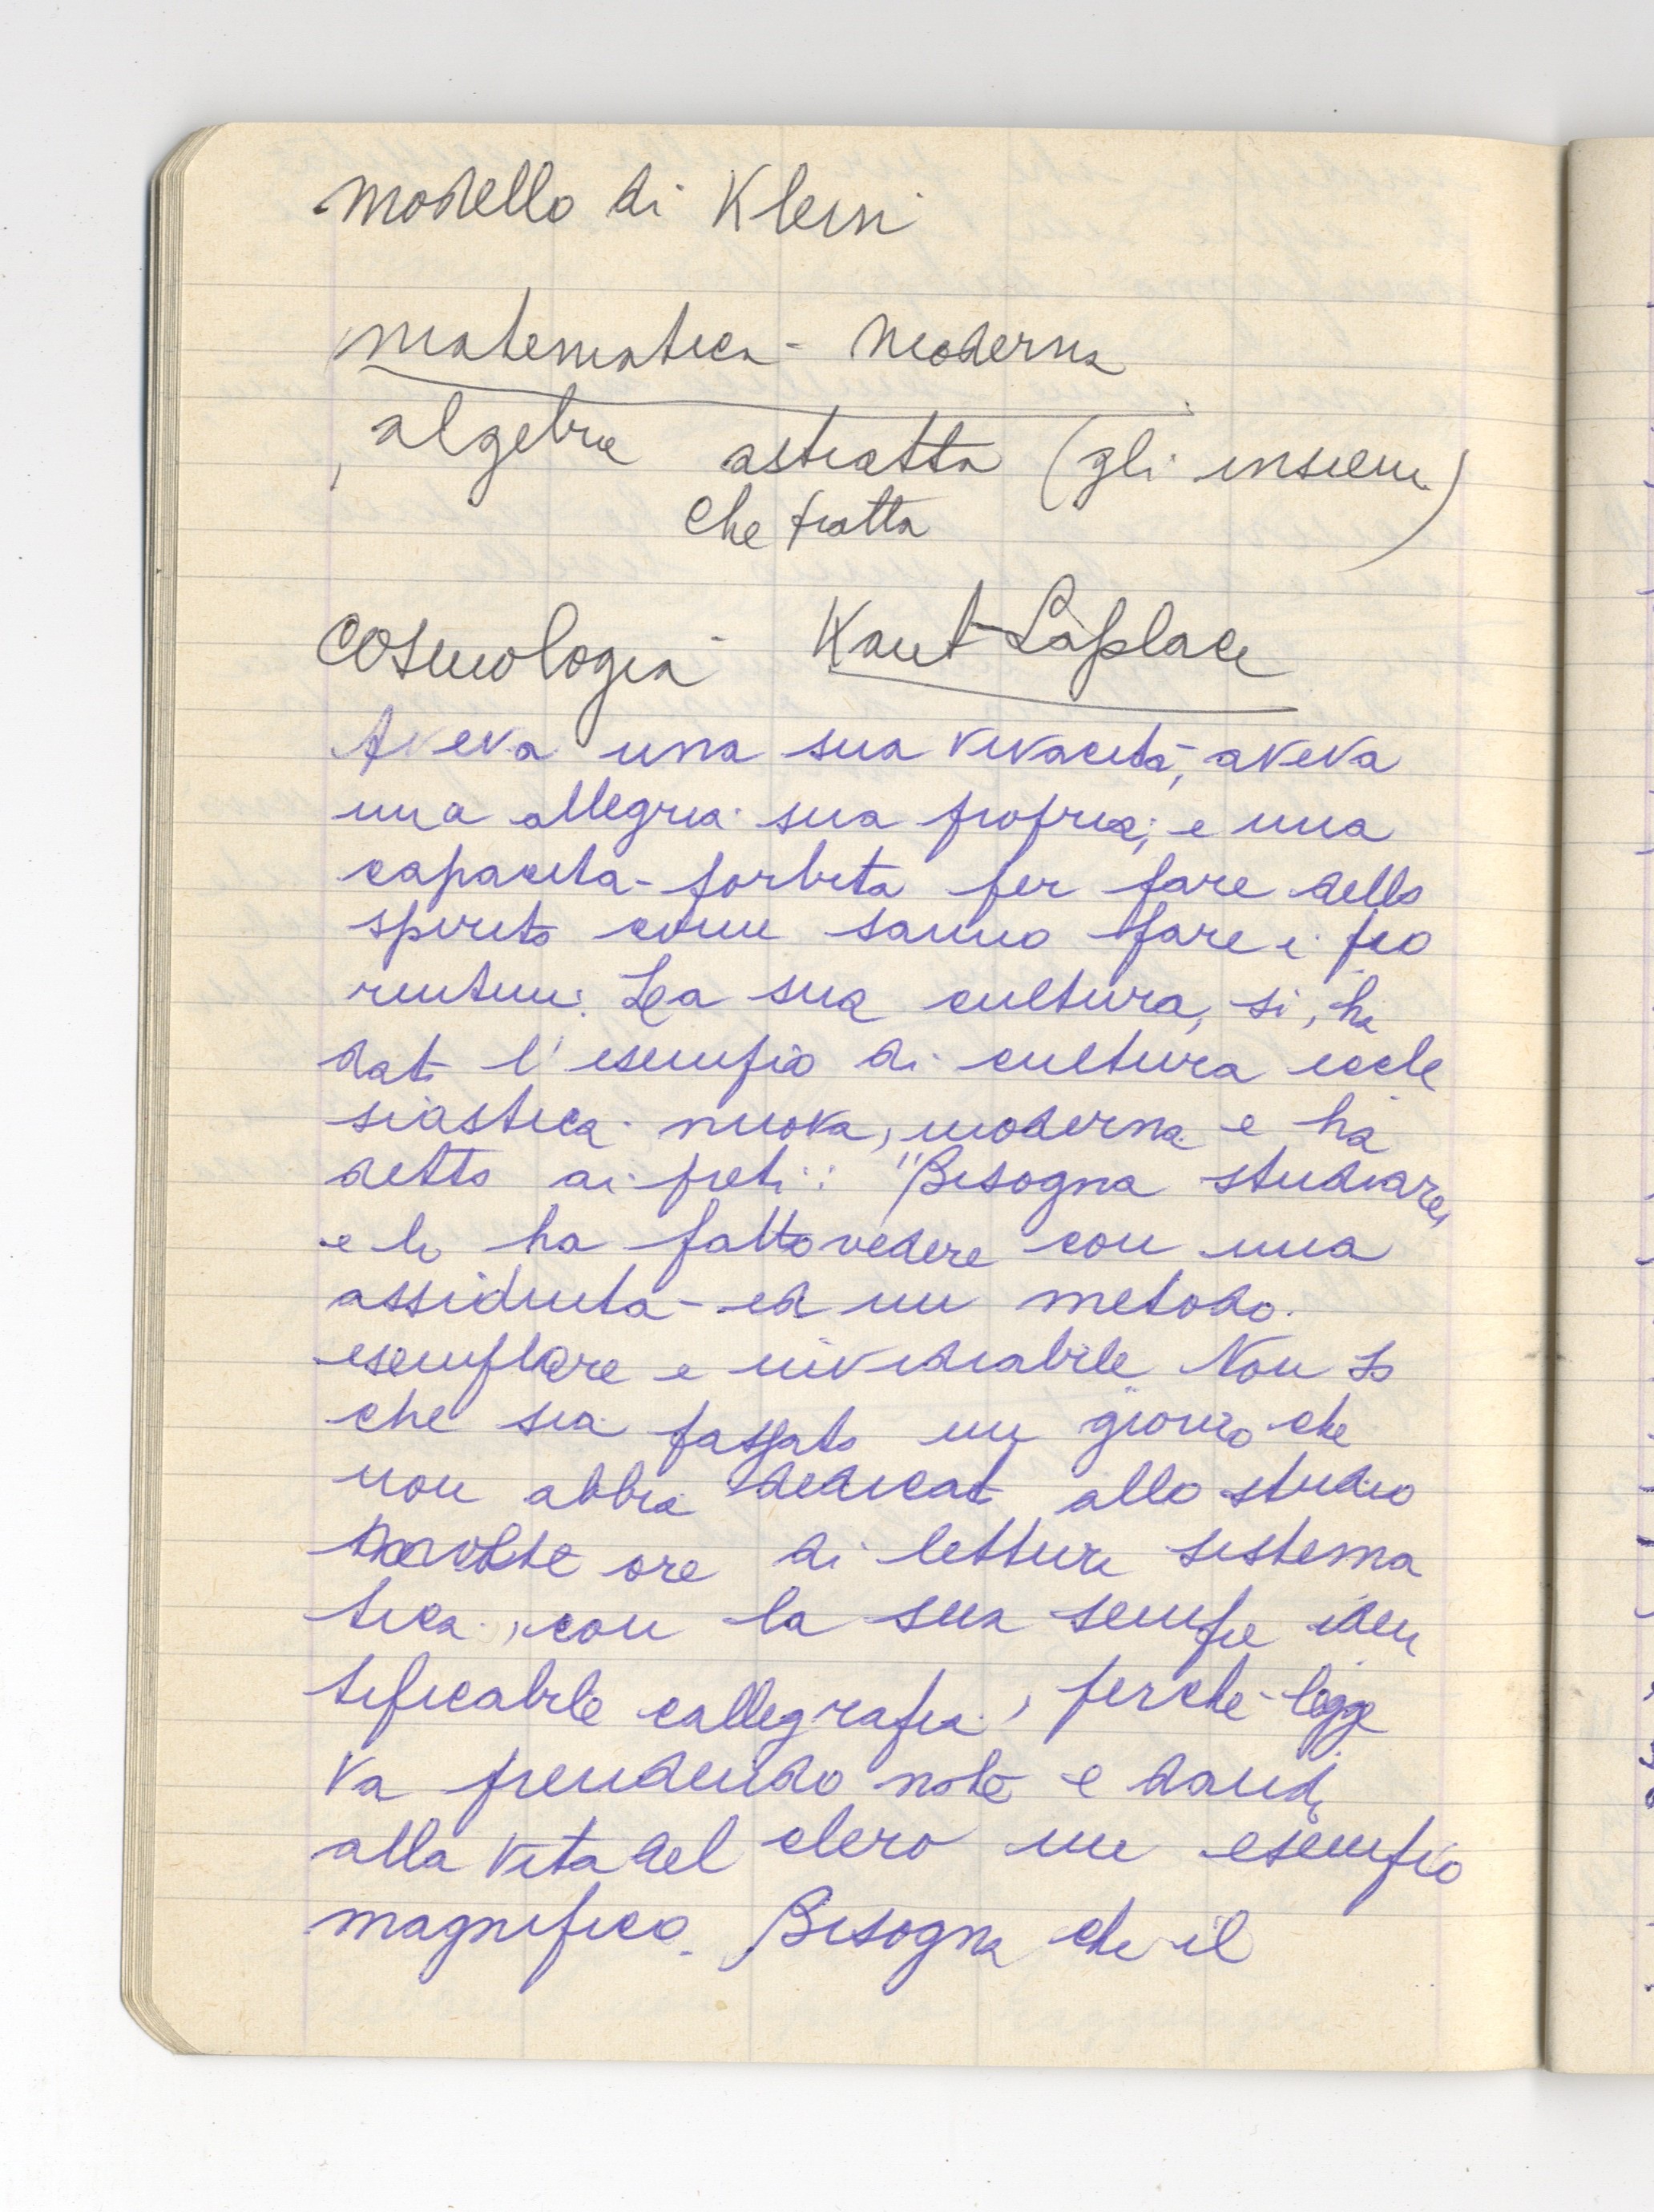 modello di Klein
matematica - moderna
algebra astratta (gli insiemi)
che tratta
cosmologia Kant-Laplace
Aveva una sua vivacità, aveva
una allegria sua propria; e una
capacità forbita per fare dello
spirito come sanno fare i fio
rentini. La sua cultura, si, ha
dato l'esempio di cultura eccle
siastica nuova, moderna e ha
detto ai preti: "Bisogna studiare,
e lo ha fatto vedere con una
assiduità ed un metodo
esemplare e invidiabile Non so
che sia passato un giorno che
non abbia dedicato allo studio
molte ore di lettura sistema
tica, con la sua sempre iden
tificabile callegrafia, perchè legge
va prendendo note e dando
alla vita del clero un esempio
magnifico. Bisogna che il